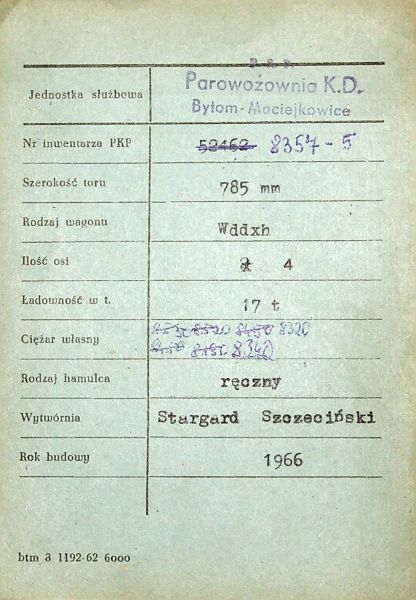 P.K.P.
Parowozownia K.D.
Bytom-Maciejkowice
Jednostka służbowa
Nr inwentarza PKP 52462 8357-5
Szerokość toru 785 mm
Rodzaj wagonu Wddxh
Ilość osi 4
Ładowność w t. 17 t
8520 8450 8320
Ciężar własny
8150 8151 8340
Rodzaj hamulca ręczny
Wytwórnia Stargard Szczeciński
Rok budowy 1966
btm 3 1192-62 6000